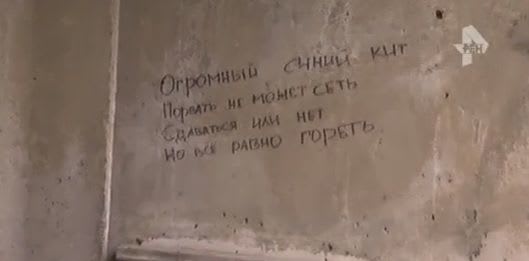 Огромный синий кит
Порвать не может сеть
Сдаваться или нет
Но всё равно гореть
РЕН